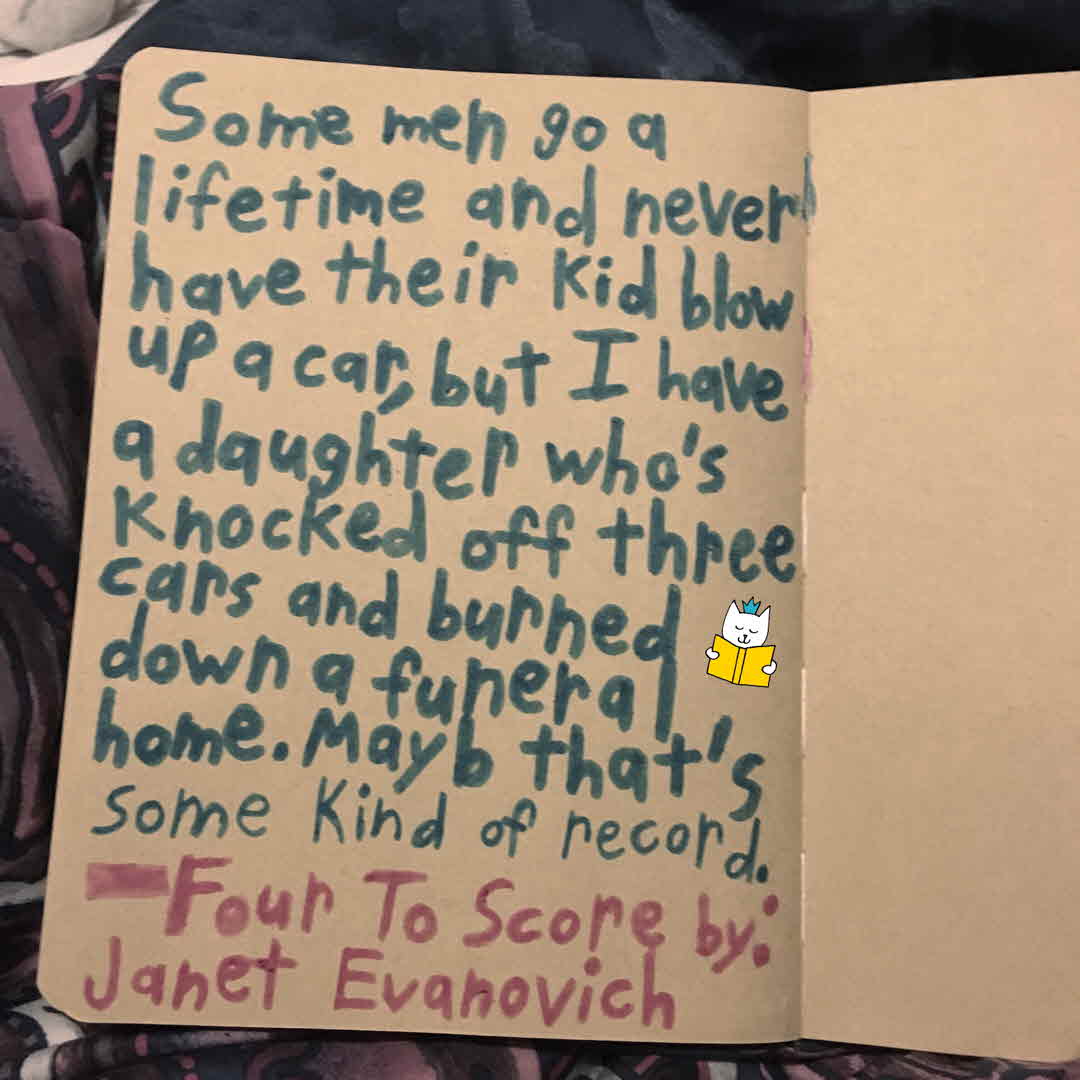 Some men go a
lifetime and never
have their kid blow
up a car, but I have
a daughter who's
knocked off three
cars and burned
down a funeral
home. Mayb that's
some kind of record.
—Four To Score by:
Janet Evanovich